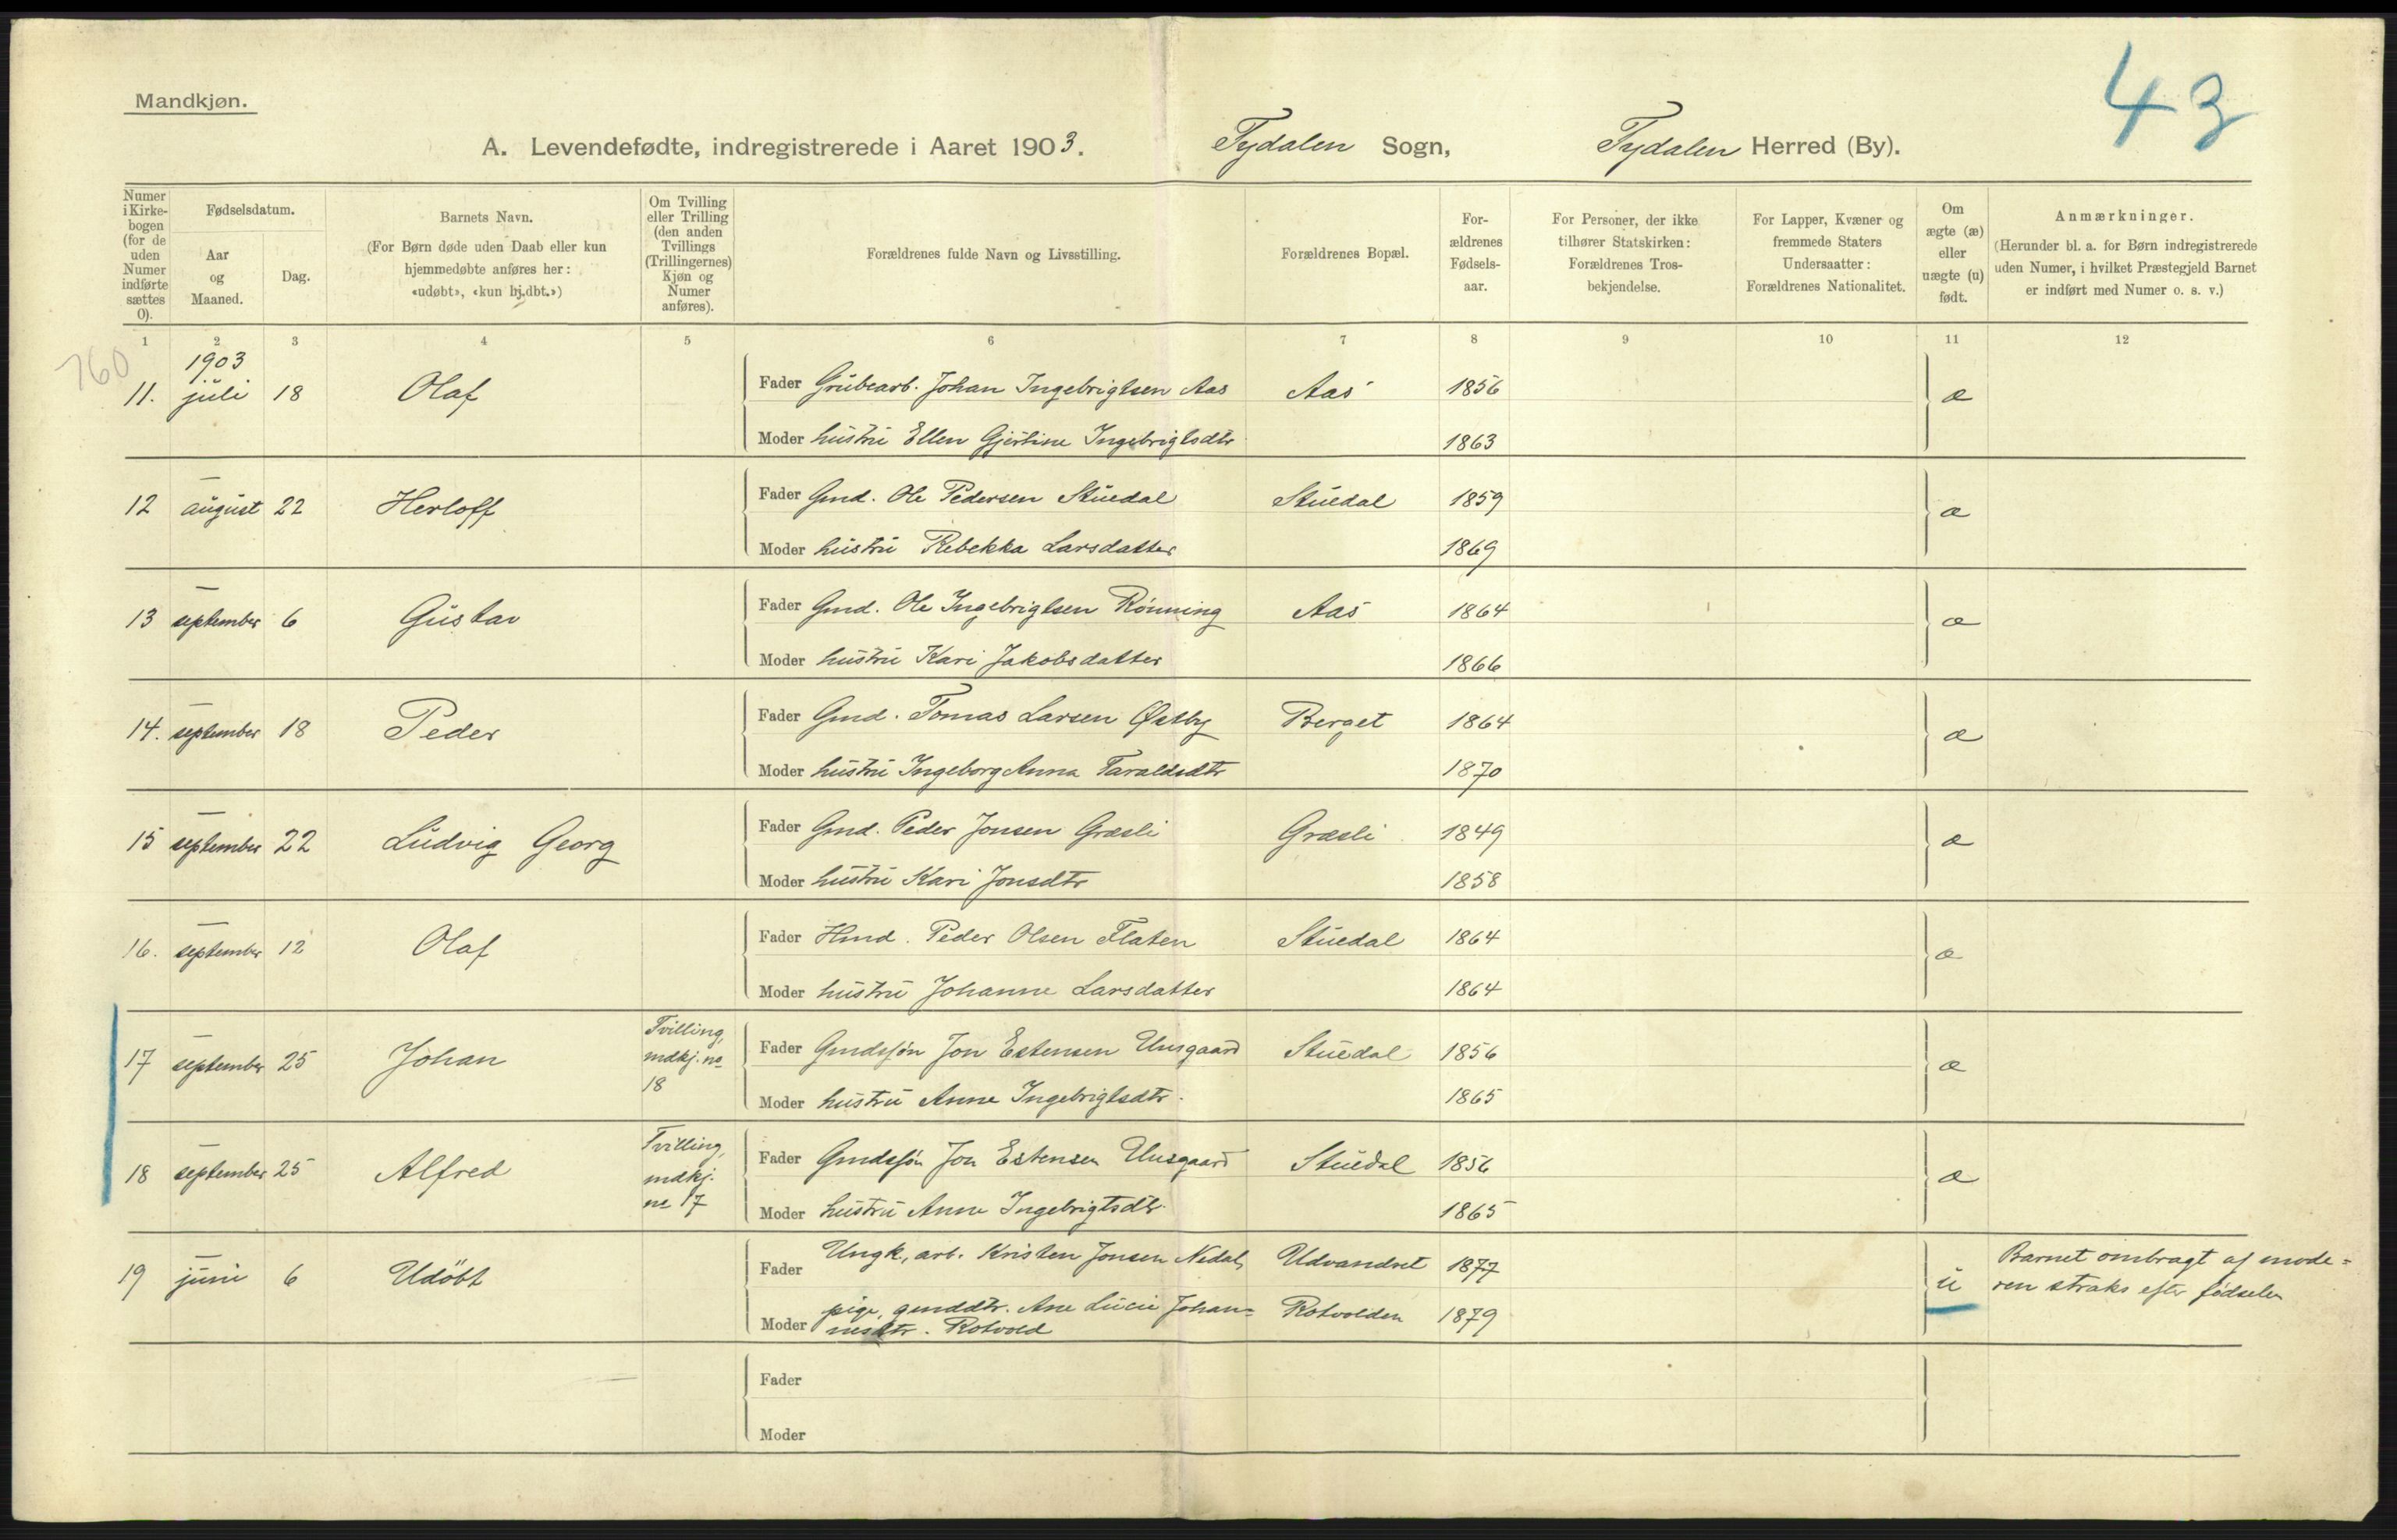 43
Mandkjøn.
A. Levendefødte, indregistrerede i Aaret 1903. Tydalen Sogn, Tydalen Herred (By).
Numer i Kirkebogen (for de uden Numer indførte sættes 0).
Fødselsdatum.
Aar og Maaned.
Dag.
Barnets Navn.
(For Børn døde uden Daab eller kun hjemmedøbte anføres her: «udøbt», «kun hj.dbt.»)
Om Tvilling eller Trilling (den anden Tvillings (Trillingernes) Kjøn og Numer anføres).
Forældrenes fulde Navn og Livsstilling.
Forældrenes Bopæl.
Forældrenes Fødselsaar.
For Personer, der ikke tilhører Statskirken: Forældrenes Trosbekjendelse.
For Lapper, Kvæner og fremmede Staters Undersaatter: Forældrenes Nationalitet.
Om ægte (æ) eller uægte (u) født.
Anmærkninger.
(Herunder bl. a. for Børn indregistrerede uden Numer, i hvilket Præstegjeld Barnet er indført med Numer o. s. v.)
1 2 3 4 5 6 7 8 9 10 11 12
760
1903
11. juli 18 Olaf Fader Grubearb. Johan Ingebrigtsen Aas Aas 1856 æ
Moder hustru Ellen Gjertine Ingebrigtsdtr 1863
12 — august 22 Herloff Fader Gmd. Ole Pedersen Stuedal Stuedal 1859 æ
Moder hustru Rebekka Larsdatter 1869
13 — september 6 Gustav Fader Gmd. Ole Ingebrigtsen Rønning Aas 1864 æ
Moder hustru Kari Jakobsdatter 1866
14. — september 18 Peder Fader Gmd. Tomas Larsen Østby Berget 1864 æ
Moder hustru Ingeborg Anna Taraldsdtr 1870
15 — september 22 Ludvig Georg Fader Gmd. Peder Jonsen Græsli Græsli 1849 æ
Moder hustru Kari Jonsdtr 1858
16. — september 12 Olaf Fader Hmd. Peder Olsen Flaten Stuedal 1864 æ
Moder hustru Johanne Larsdatter 1864
17 — september 25 Johan Tvilling, mdkj. no 18 Fader Gmdssøn Jon Estensen Unsgaard Stuedal 1856 æ
Moder hustru Anne Ingebrigtsdtr. 1865
18 — september 25 Alfred Tvilling, mdkj. no 17 Fader Gmdssøn Jon Estensen Unsgaard Stuedal 1856 æ
Moder hustru Anne Ingebrigtsdtr. 1865
19 — juni 6 Udøbt Fader Ungk., arb. Kristen Jonsen Nedal, Udvandret 1877 u Barnet ombragt af mode=
ren straks efter fødselen
Moder pige, gmddtr. Ane Lucie Johan= Rotvolden 1879
nesdtr. Rotvold
Fader
Moder